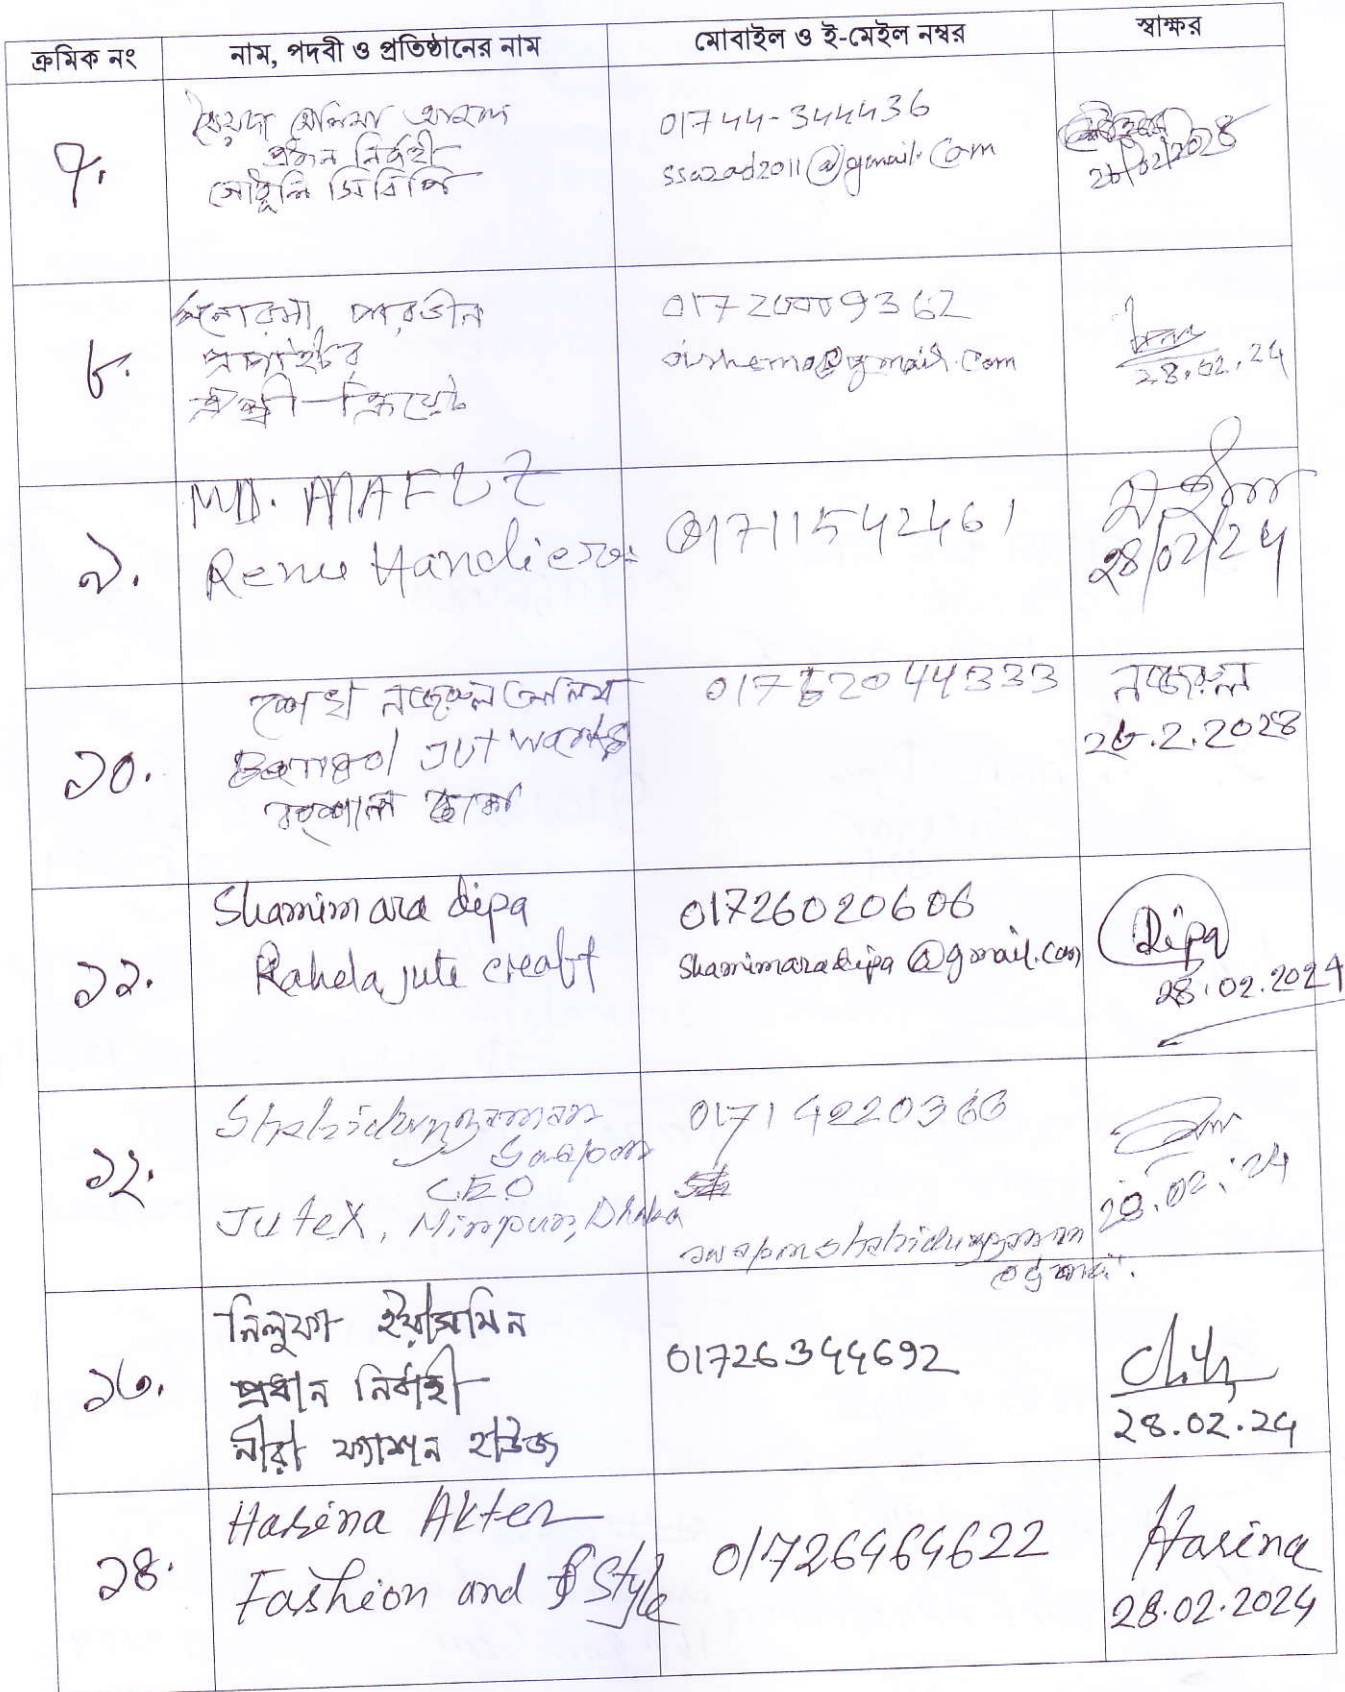 ক্রমিক নং নাম, পদবী ও প্রতিষ্ঠানের নাম মোবাইল ও ই-মেইল নম্বর স্বাক্ষর
৭.
সৈয়দা সেলিমা আজাদ
প্রধান নির্বাহী
01744-344436
ssazad2011@gmail.com
২৮/০২/২০২৪
৮.
মনোরমা পারভীন
প্রপাইটর
@gmail.com
28.02.24
৯.
MD. HAFIZ
Renu Handicra
01711542461
২৮/০২/২৪
১০.
শেখ নজরুল আলিম
Bengol JUT works
044333
নজরুল
২৮.2.20২৪
১১.
Shamim ara dipa
Rahela jute creaft
01726020606
shamimaradipa@gmail.com
Dipa
28.02.2024
১২.
Shahiduzzaman
Swapon
CEO
JuteX, Mirpur, Dhaka
swapnshahiduzzaman
28.02.24
১৩.
নিলুফা ইয়াসমিন
প্রধান নির্বাহী
নীরা ফ্যাশন হাউজ
01726344692
28.02.24
১৪.
Hasina Akter
Fashion and Style
01726464622
Hasina
28.02.2024